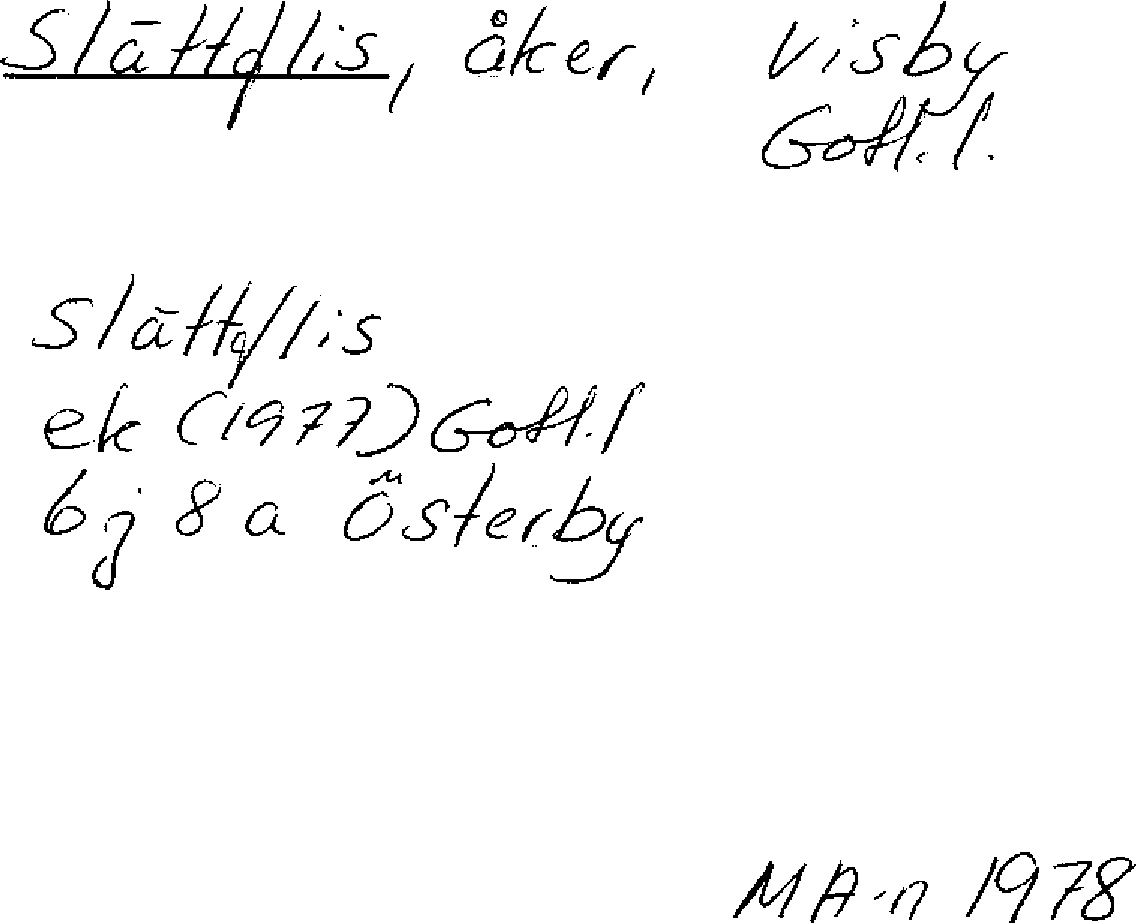 Slättflis, åker, Visby
Gotl. l.
Slättflis
ek (1977) Gotl. l
6j 8a Österby
MA-n 1978